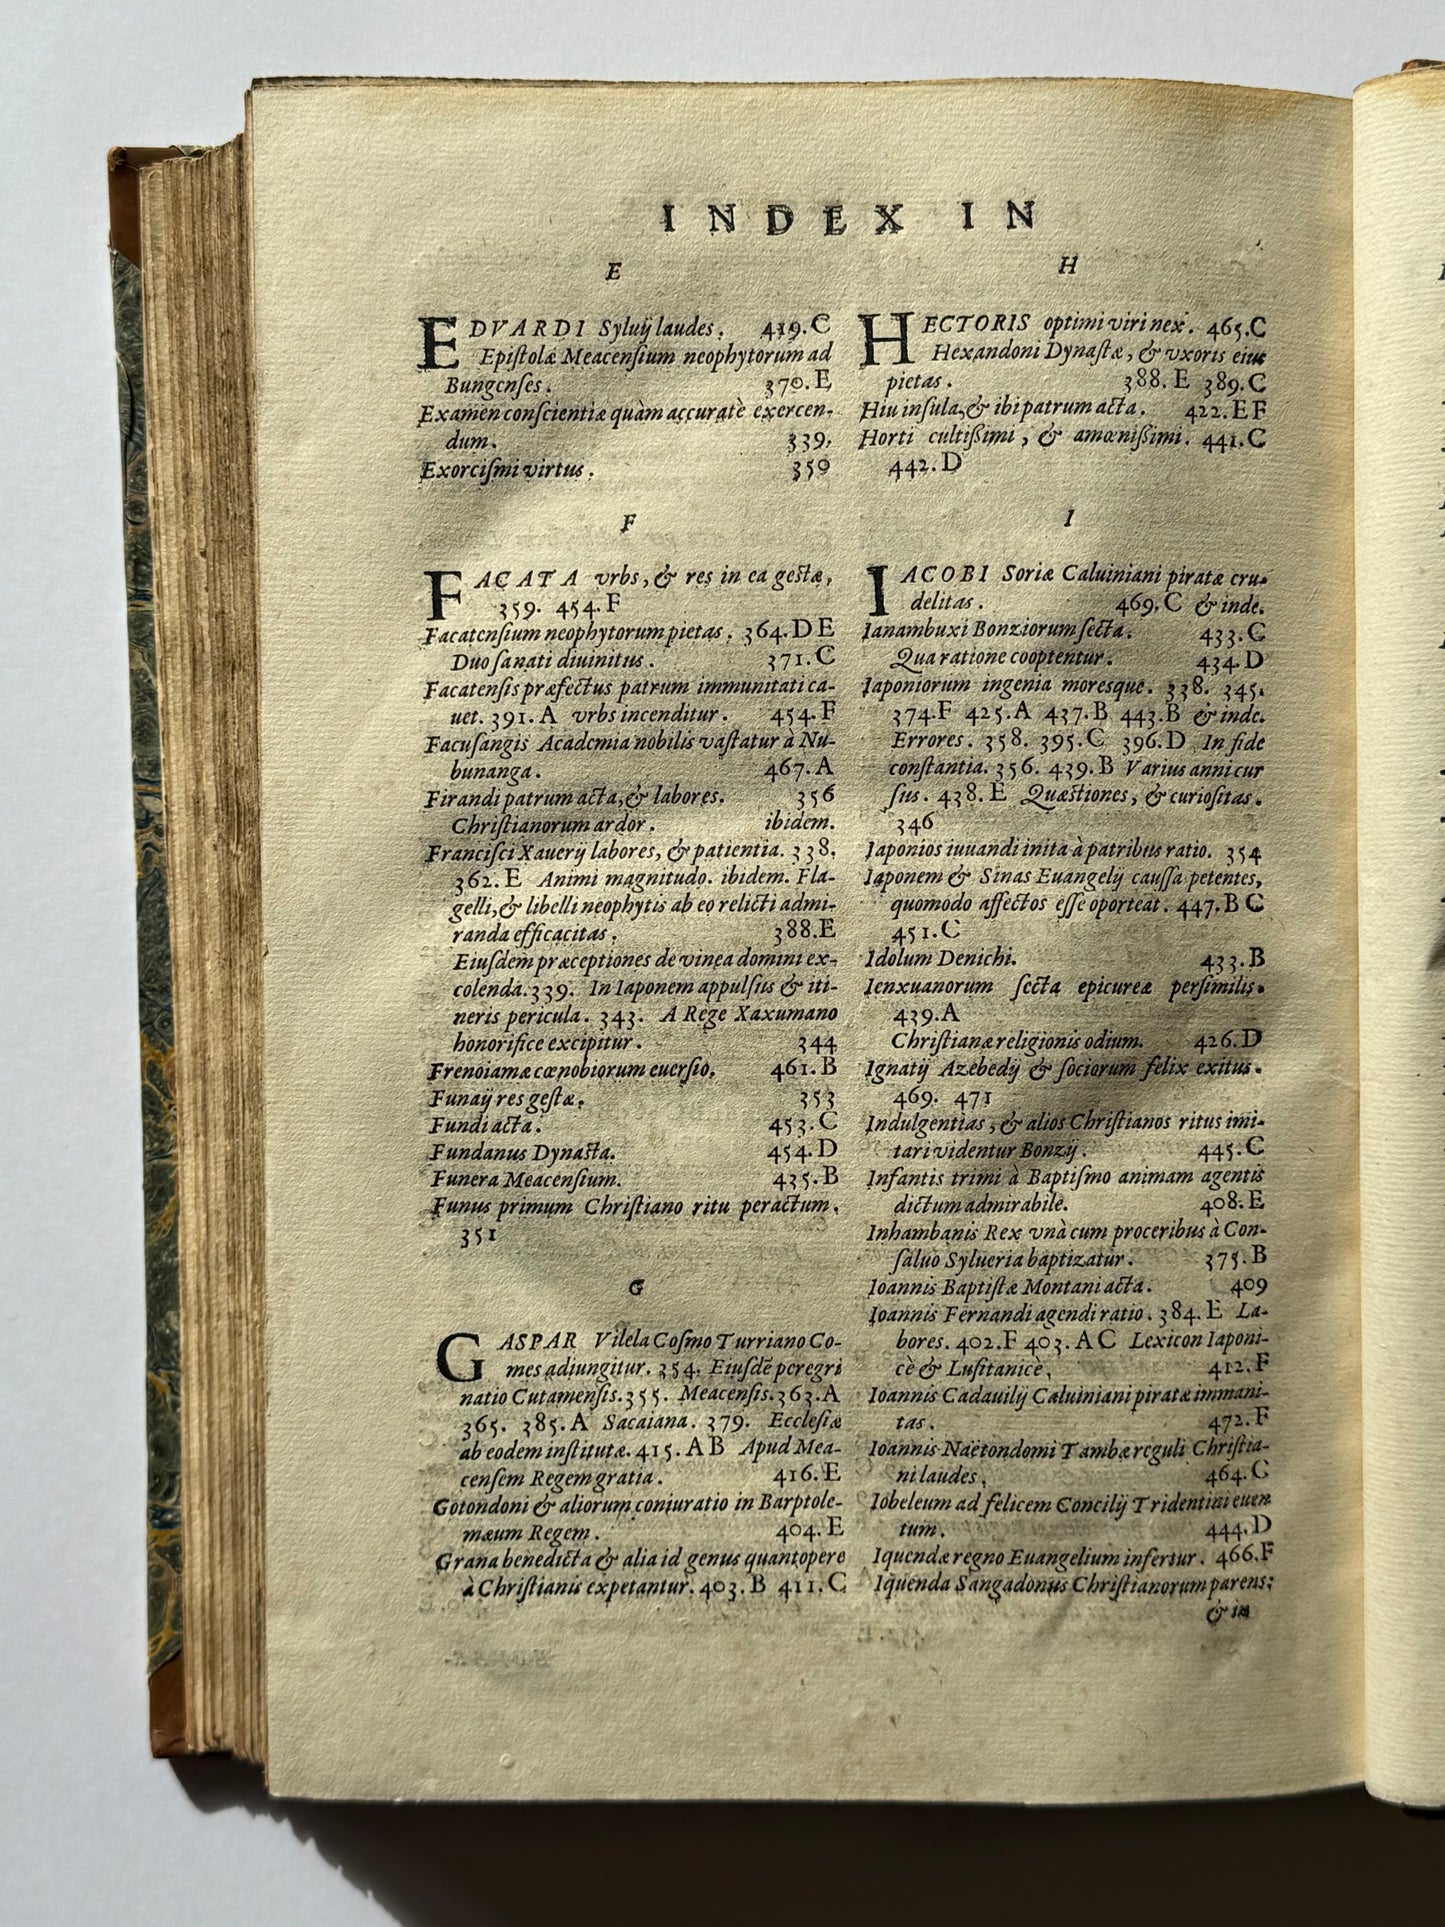 INDEX IN
E
EDVARDI Syluij laudes. 419.C
Epiſtolæ Meacenſium neophytorum ad
Bungenſes. 370.E
Examen conſcientiæ quàm accuratè exercen-
dum. 339.
Exorciſmi virtus. 359
F
FACATA vrbs, & res in ea geſtæ,
359. 454.F
Facatenſium neophytorum pietas. 364.DE
Duo ſanati diuinitus. 371.C
Facatenſis præfectus patrum immunitati ca-
uet. 391.A vrbs incenditur. 454.F
Facuſangis Academia nobilis vaſtatur à Nu-
bunanga. 467.A
Firandi patrum acta, & labores. 356
Chriſtianorum ardor. ibidem.
Franciſci Xauerij labores, & patientia. 338.
362.E Animi magnitudo. ibidem. Fla-
gelli, & libelli neophytis ab eo relicti admi-
randa efficacitas. 388.E
Eiuſdem præceptiones de vinea domini ex-
colenda. 339. In Iaponem appulſus & iti-
neris pericula. 343. A Rege Xaxumano
honorifice excipitur. 344
Frenoiamæ cœnobiorum euerſio. 461.B
Funaij res geſtæ. 353
Fundi acta. 453.C
Fundanus Dynaſta. 454.D
Funera Meacenſium. 435.B
Funus primum Chriſtiano ritu peractum.
351
G
GASPAR Vilela Coſmo Turriano Co-
mes adiungitur. 354. Eiuſdē peregri
natio Cutamenſis. 355. Meacenſis. 363.A
365. 385.A Sacaiana. 379. Eccleſiæ
ab eodem inſtitutæ. 415.AB Apud Mea-
cenſem Regem gratia. 416.E
Gotondoni & aliorum coniuratio in Barptole-
mæum Regem. 404.E
Grana benedicta & alia id genus quantopere
à Chriſtianis expetantur. 403.B 411.C
H
HECTORIS optimi viri nex. 465.C
Hexandoni Dynaſtæ, & vxoris eius
pietas. 388.E 389.C
Hiu inſula, & ibi patrum acta. 422.EF
Horti cultiſſimi, & amœniſſimi. 441.C
442.D
I
IACOBI Soriæ Caluiniani piratæ cru-
delitas. 469.C & inde.
Ianambuxi Bonziorum ſecta. 433.C
Qua ratione cooptentur. 434.D
Iaponiorum ingenia moresque. 338. 345.
374.F 425.A 437.B 443.B & inde.
Errores. 358. 395.C 396.D In fide
conſtantia. 356. 439.B Varius anni cur
ſus. 438.E Quæſtiones, & curioſitas.
346
Iaponios iuuandi inita à patribus ratio. 354
Iaponem & Sinas Euangelij cauſſa petentes,
quomodo affectos eſſe oporteat. 447.BC
451.C
Idolum Denichi. 433.B
Ienxuanorum ſecta epicureæ perſimilis.
439.A
Chriſtianæ religionis odium. 426.D
Ignatij Azebedij & ſociorum felix exitus.
469. 471
Indulgentias, & alios Chriſtianos ritus imi-
tari videntur Bonzij. 445.C
Infantis trimi à Baptiſmo animam agentis
dictum admirabile. 408.E
Inhambanis Rex vnà cum proceribus à Con-
ſaluo Sylueria baptizatur. 375.B
Ioannis Baptiſtæ Montani acta. 409
Ioannis Fernandi agendi ratio. 384.E La-
bores. 402.F 403.AC Lexicon Iaponi-
cè & Luſitanicè. 412.F
Ioannis Cadauilij Caluiniani piratæ immani-
tas. 472.F
Ioannis Naëtondomi Tambæ reguli Chriſtia-
ni laudes. 464.C
Iobeleum ad felicem Concilij Tridentini euen
tum. 444.D
Iquendæ regno Euangelium infertur. 466.F
Iquenda Sangadonus Chriſtianorum parens:
& in